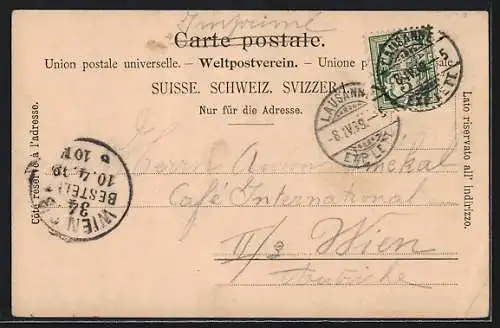 Imprimé
Carte postale.
Union postale universelle. – Weltpostverein. – Unione postale universale
SUISSE. SCHWEIZ. SVIZZERA.
Nur für die Adresse.
Côté réservé à l'adresse.
Lato riservato all' indirizzo.
LAUSANNE
EXP. LETT.
LAUSANNE
EXP. LETT.
WIEN
BESTELLT
Herrn
Café International
II/3 Wien